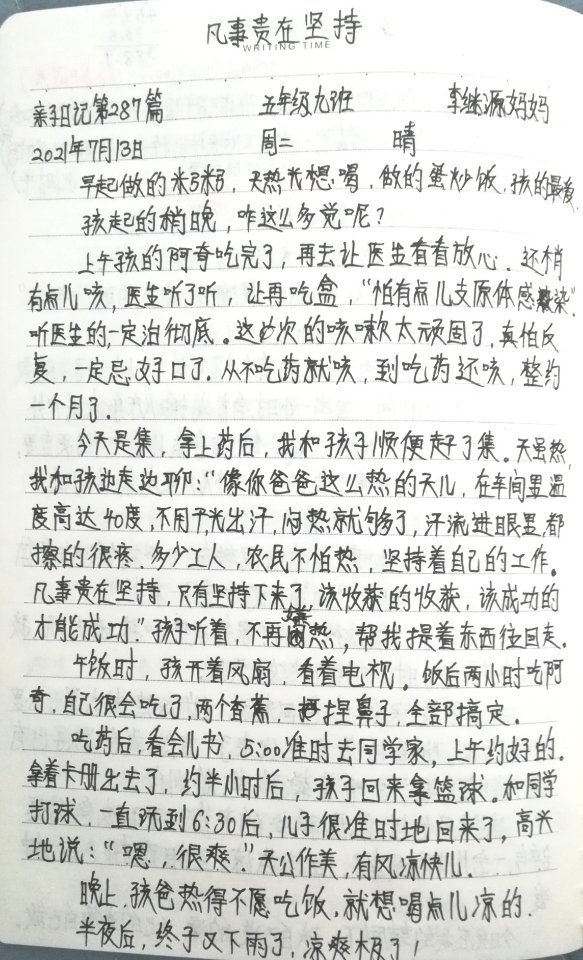 凡事贵在坚持
WRITING TIME
亲子日记第287篇 五年级九班 李继源妈妈
2021年7月13日 周二 晴
早起做的米粥，天热光想喝，做的蛋炒饭，孩的最爱
孩起的稍晚，咋这么多觉呢？
上午孩的阿奇吃完了，再去让医生看看放心。还稍
有点儿咳，医生听了听，让再吃盒，“怕有点儿支原体感染”
听医生的，一定治彻底。这次的咳嗽太顽固了，真怕反
复，一定忌好口了。从不吃药就咳，到吃药还咳，整约
一个月了。
今天是集，拿上药后，我和孩子顺便赶了集。天虽热，
我和孩边走边聊：“像你爸爸这么热的天儿，在车间里温
度高达40度，不用干光出汗，闷热就够了，汗流进眼里，都
擦的很疼。多少工人，农民不怕热，坚持着自己的工作。
凡事贵在坚持，只有坚持下来了，该收获的收获，该成功的
才能成功。”孩子听着，不再嫌热，帮我提着东西往回走。
午饭时，孩开着风扇，看着电视。饭后两小时吃阿
奇，自己很会吃了，两个香蕉，一捏鼻子，全部搞定。
吃药后，看会儿书，5:00准时去同学家，上午约好的。
拿着卡册出去了，约半小时后，孩子回来拿篮球。和同学
打球，一直玩到6:30后，儿子很准时地回来了，高兴
地说：“嗯，很爽。”天公作美，有风凉快儿。
晚上，孩爸热得不愿吃饭，就想喝点儿凉的。
半夜后，终于又下雨了，凉爽极了！